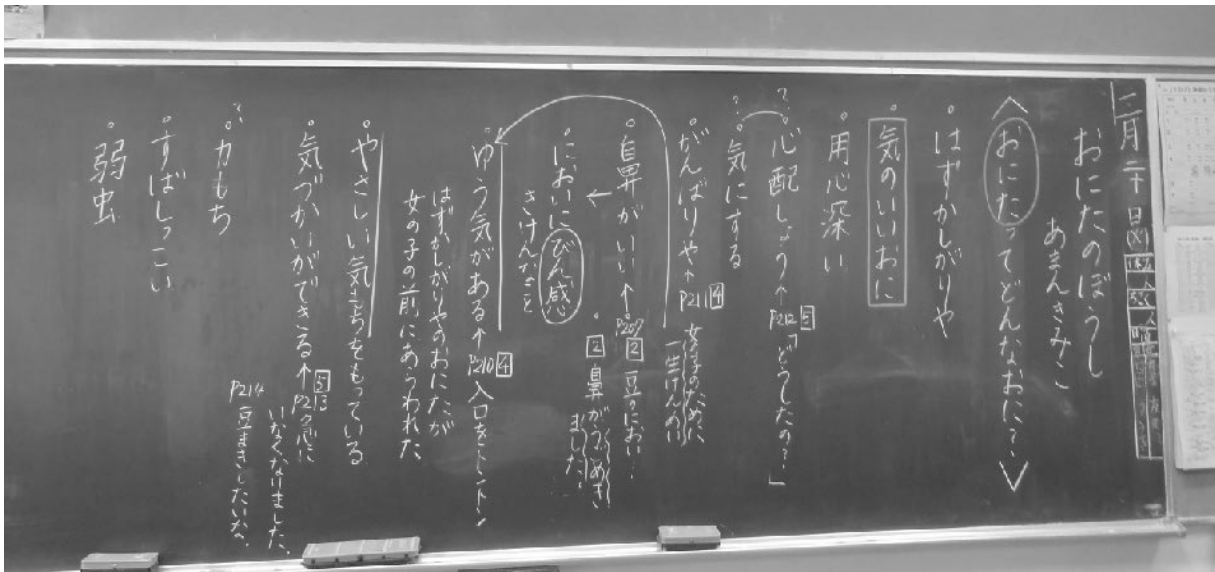 二月二十日(火)
おにたのぼうし
あまんきみこ
〈おにたってどんなおに?〉
。はずかしがりや
。気のいいおに
。用心深い
?。心配しょう↑P212 5 「どうしたの?」
?。気にする
。がんばりや↑P211 4 女の子のために
一生けんめい
。鼻がいい↑P207 2 豆のにおい…
2 鼻がひくひくめき
ました。
←
。においにびん感
きけんなこと
。ゆう気がある↑P210 4 入口をトントン
はずかしがりやのおにたが
女の子の前にあらわれた
。やさしい気もちをもっている
。気づかいができる↑ 急に
いなくなりました。
P214 豆まきしたいな。
?。力もち
。すばしっこい
。弱虫